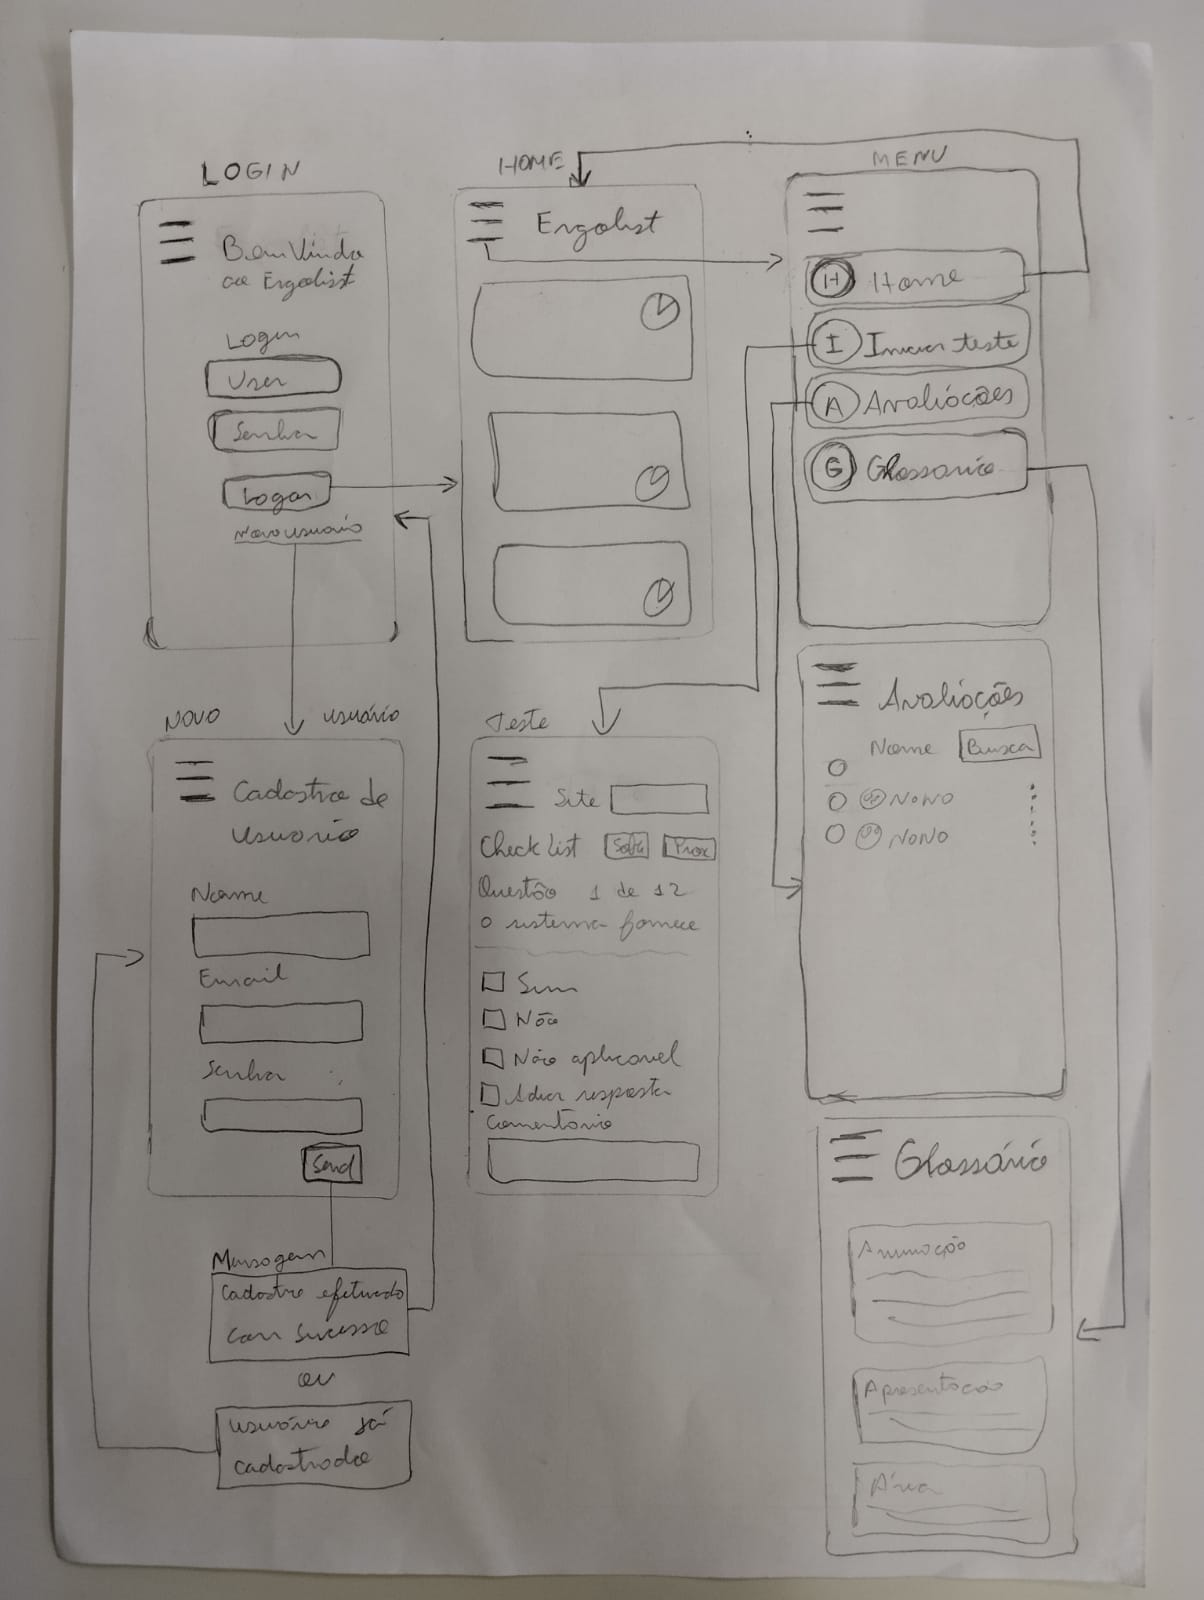 LOGIN
Bem Vindo
ao Ergolist
Login
User
Senha
Logar
Novo usuário
HOME
Ergolist
MENU
H Home
I Iniciar teste
A Avaliações
G Glossario
NOVO USUÁRIO
Cadastro de
usuario
Nome
Email
Senha
Send
Mensagem
Cadastro efetuado
com sucesso
ou
usuário já
cadastrado
Teste
Site
Check List Prox
Questão 1 de 12
o sistema fornece
Sim
Não
Não aplicavel
Adiar resposta
Comentário
Avaliações
Nome Busca
NONO
NONO
Glossário
Animação
Apresentação
Área